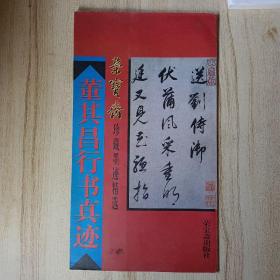 董其昌行书真迹
荣宝斋
珍藏墨迹精选
送刘侍御
伏蒲风采重明
廷又见君
荣宝斋出版社